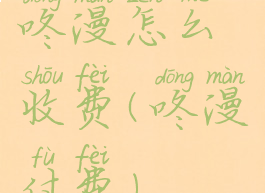 dōng màn zěn me
咚漫怎么
shōu fèi dōng màn
收费(咚漫
fù fèi
付费)